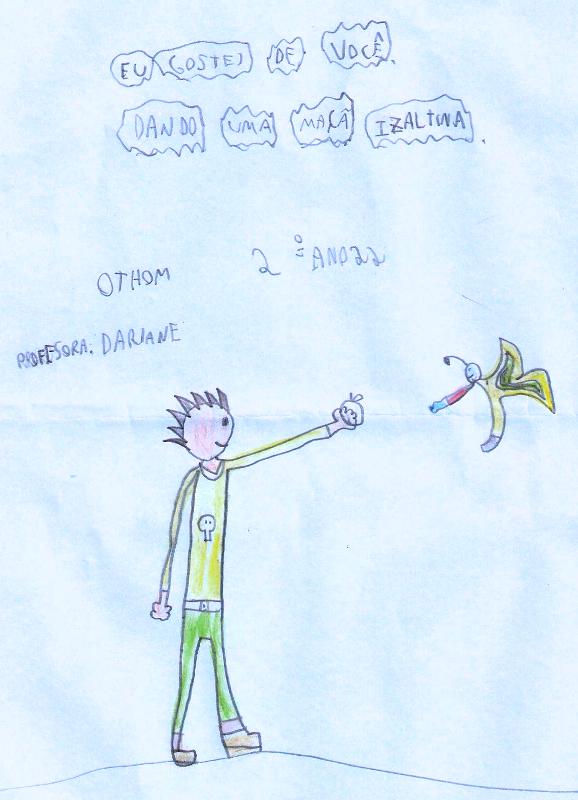 EU GOSTEI DE VOCÊ.
DANDO UMA MAÇÃ IZALTINA.
OTHOM 2º ANO22
PROFESORA. DARIANE